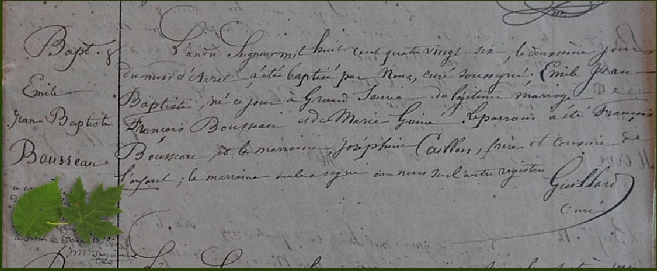 Bapt. 8
Emile
Jean Baptiste
Bousseau
L'an du Seigneur mil huit cent quatre vingt six, le douzième jour
du mois d'Avril, a été baptisé par Nous, curé soussigné, Emile Jean
Baptiste, né ce jour à Grand du légitime mariage De
François Bousseau et de Marie . Le parrain a été François
Bousseau, et la marraine Joséphine Caillon, frère et cousine de
l'enfant; la marraine seule a signé avec nous sur l'autre registre
Guillard
Curé